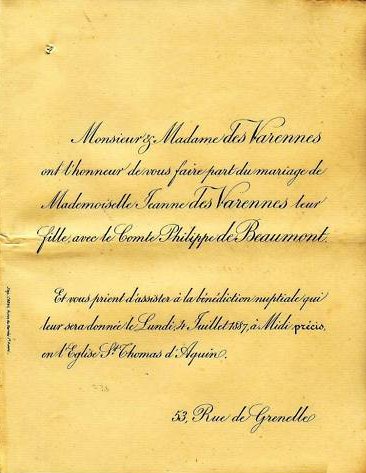 Monsieur & Madame des Varennes
ont l'honneur de vous faire part du mariage de
Mademoiselle Jeanne des Varennes leur
fille, avec le Comte Philippe de Beaumont.
Et vous prient d'assister à la bénédiction nuptiale qui
leur sera donnée le Lundi, 4 Juillet 1887, à Midi précis,
en l'Eglise St Thomas d'Aquin.
53, Rue de Grenelle